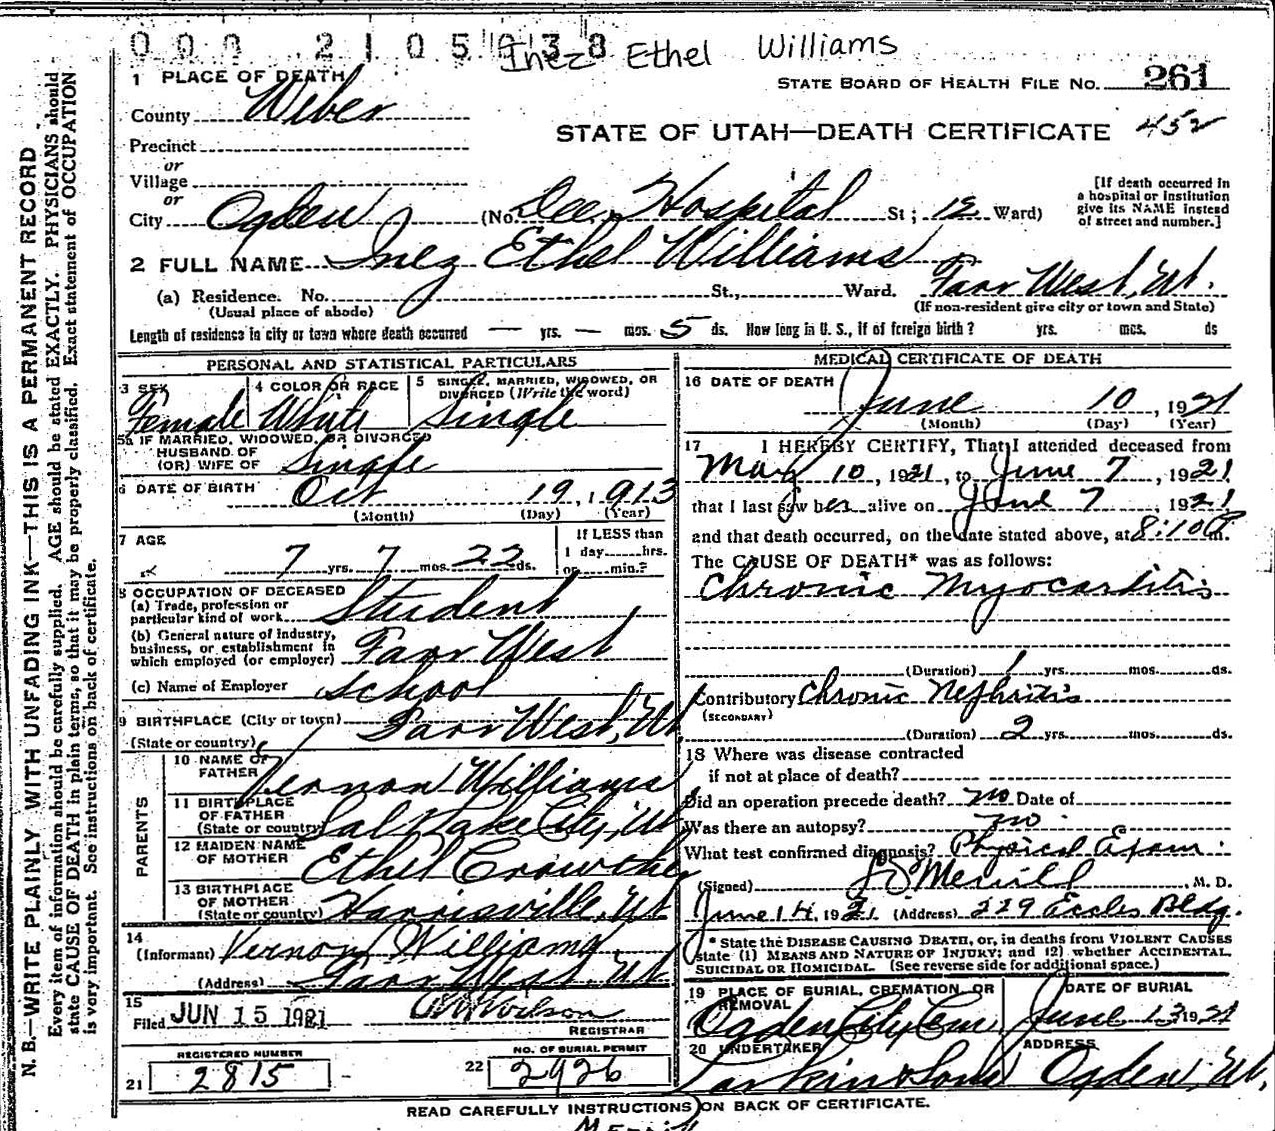 000 2105038 Inez Ethel Williams
1 PLACE OF DEATH
STATE BOARD OF HEALTH FILE NO. 261
County Weber
STATE OF UTAH—DEATH CERTIFICATE 452
Precinct
or
Village
or
City Ogden (No. Dee Hospital St; 12 Ward)
[If death occurred in
a hospital or institution
give its NAME instead
of street and number.]
2 FULL NAME Inez Ethel Williams
(a) Residence. No. St., Ward. Farr West, Ut.
(Usual place of abode) (If non-resident give city or town and State)
Length of residence in city or town where death occurred — yrs. — mos. 5 ds. How long in U. S., if of foreign birth? yrs. mos. ds
PERSONAL AND STATISTICAL PARTICULARS
3 SEX
Female
4 COLOR OR RACE
White
5 SINGLE, MARRIED, WIDOWED, OR
DIVORCED (Write the word)
Single
5a IF MARRIED, WIDOWED, OR DIVORCED
HUSBAND OF
(OR) WIFE OF Single
6 DATE OF BIRTH Oct 19, 1913
(Month) (Day) (Year)
7 AGE
7 yrs. 7 mos. 22 ds.
If LESS than
1 day hrs.
or min.?
8 OCCUPATION OF DECEASED
(a) Trade, profession or
particular kind of work Student
(b) General nature of industry,
business, or establishment in
which employed (or employer) Farr West
(c) Name of Employer School
9 BIRTHPLACE (City or town) Farr West, Ut
(State or country)
PARENTS
10 NAME OF
FATHER Vernon Williams
11 BIRTHPLACE
OF FATHER
(State or country) Salt Lake City, Ut
12 MAIDEN NAME
OF MOTHER Ethel Crowther
13 BIRTHPLACE
OF MOTHER
(State or country) Harrisville, Ut
14
(Informant) Vernon Williams
(Address) Farr West, Ut
15
Filed JUN 15 1921 Wilson
REGISTRAR
REGISTERED NUMBER
21 2815
NO. OF BURIAL PERMIT
22 2926
MEDICAL CERTIFICATE OF DEATH
16 DATE OF DEATH
June 10, 1921
(Month) (Day) (Year)
17 I HEREBY CERTIFY, That I attended deceased from
May 10, 1921, to June 7, 1921
that I last saw her alive on June 7, 1921
and that death occurred, on the date stated above, at 8:10 P.m.
The CAUSE OF DEATH* was as follows:
Chronic Myocarditis
(Duration) 1 yrs. mos. ds.
Contributory Chronic Nephritis
(SECONDARY)
(Duration) 2 yrs. mos. ds.
18 Where was disease contracted
if not at place of death?
Did an operation precede death? no Date of
Was there an autopsy? no
What test confirmed diagnosis? Physical Exam.
(Signed) Merrill, M. D.
June 14, 1921 (Address) 229 Eccles Bldg.
* State the DISEASE CAUSING DEATH, or, in deaths from VIOLENT CAUSES
state (1) MEANS AND NATURE OF INJURY; and (2) whether ACCIDENTAL,
SUICIDAL or HOMICIDAL. (See reverse side for additional space.)
19 PLACE OF BURIAL, CREMATION, OR
REMOVAL
Ogden City Cem
DATE OF BURIAL
June 13 1921
20 UNDERTAKER
Larkin & Sons
ADDRESS
Ogden, Ut.
READ CAREFULLY INSTRUCTIONS ON BACK OF CERTIFICATE.
Merrill
N. B.—WRITE PLAINLY WITH UNFADING INK—THIS IS A PERMANENT RECORD
Every item of information should be carefully supplied. AGE should be stated EXACTLY. PHYSICIANS should
state CAUSE OF DEATH in plain terms, so that it may be properly classified. Exact statement of OCCUPATION
is very important. See instructions on back of certificate.